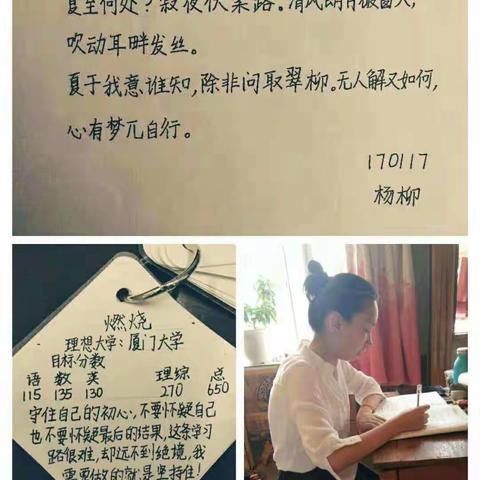 夏至何处？寂夜伏案路。清风朗月窗人，
吹动耳畔发丝。
夏于我意谁知，除非问取翠柳。无人解又如何，
心有梦兀自行。
170117
杨柳
燃烧
理想大学：厦门大学
目标分数
语 数 英 理综 总
115 135 130 270 650
守住自己的初心，不要怀疑自己
也不要怀疑最后的结果，这条学习
路很难，却远不到绝境，我
需要做的就是坚持住！